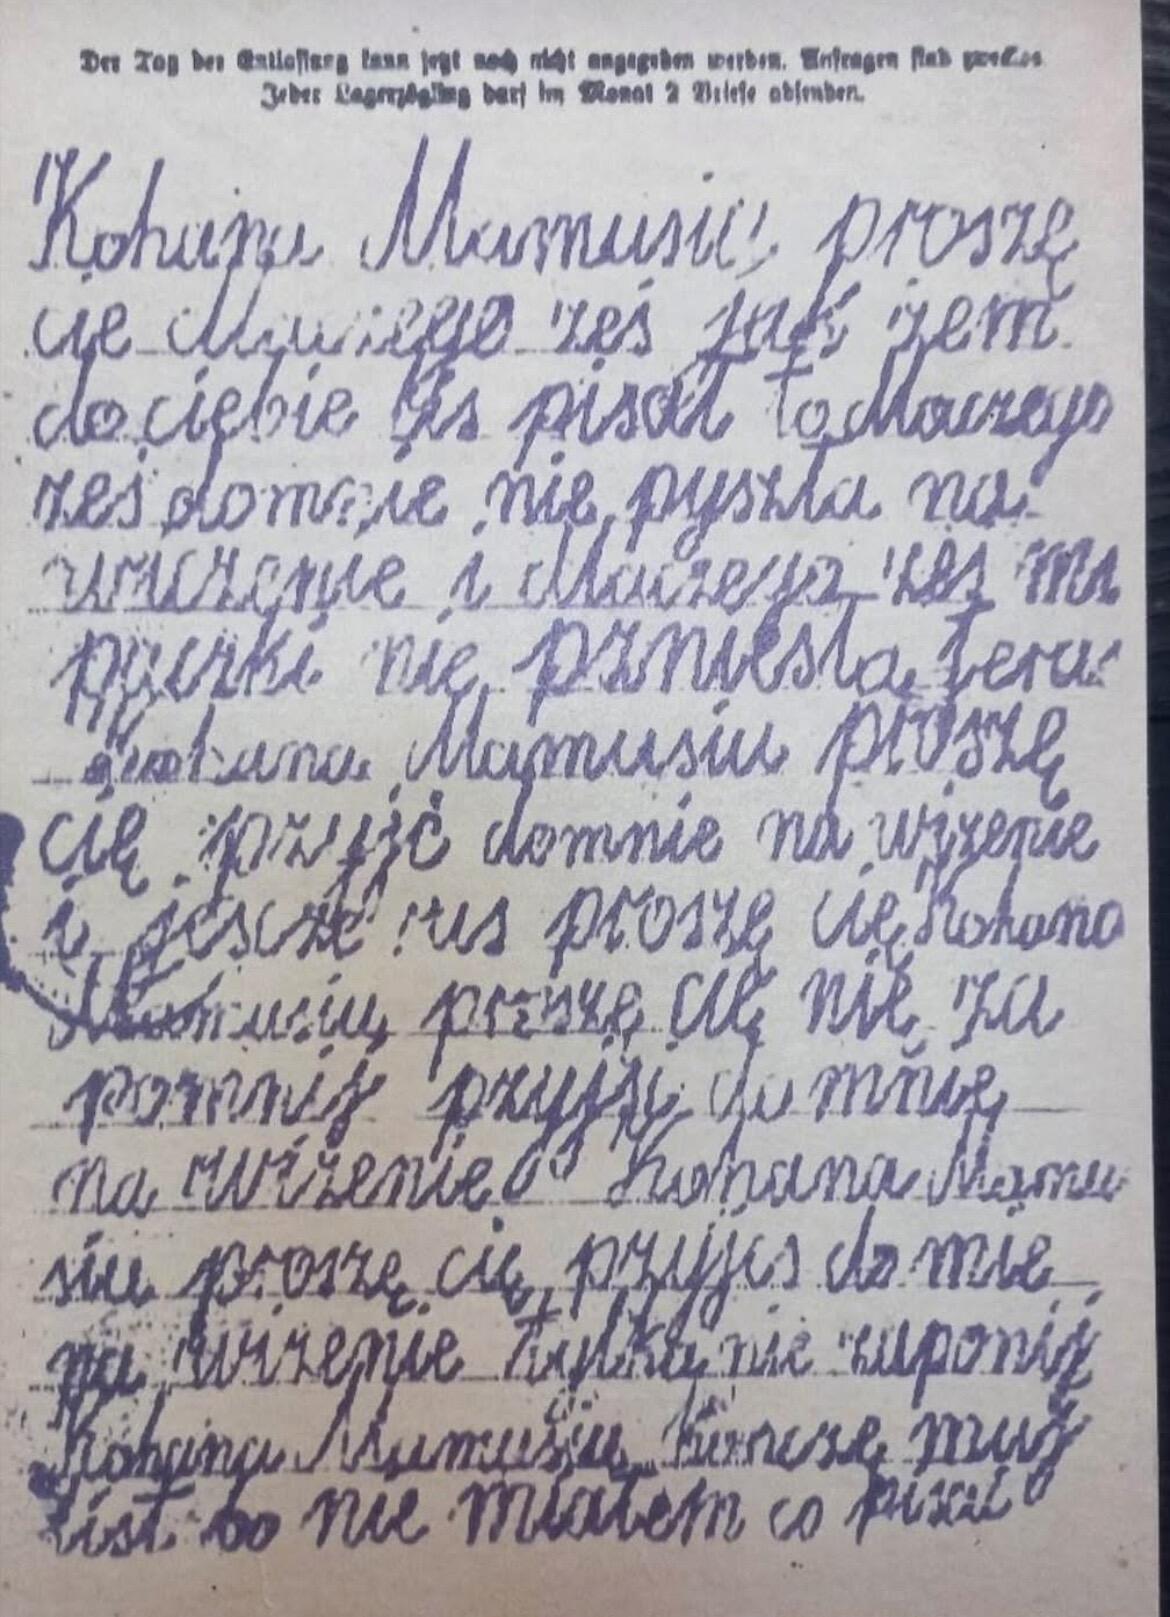 Der Tag der Entlassung kann jetzt noch nicht angegeben werden. Anfragen sind zwecklos
Jeder Lagerzögling darf im Monat 2 Briefe absenden.
Kohana Mamusiu proszę
cie dlaczego żeś jak żem
do ciebie lis pisał to dlaczego
żeś domnie nie pyszła na
wiczenie i dlaczego żeś mi
paczki nie pszniesła tera
kohana Mamusiu proszę
cię pszyjć domnie na wizenie
i jescze ras proszę cię kohana
Mamusiu proszę cię nie za
pomnij pszyjść do mnie
na wiżenie kohana Mamu
siu proszę cię pszyjcs do mie
na wiżenie tylko nie zaponij
Kohana Mamusiu kończe muj
list bo nie miałem co pisać